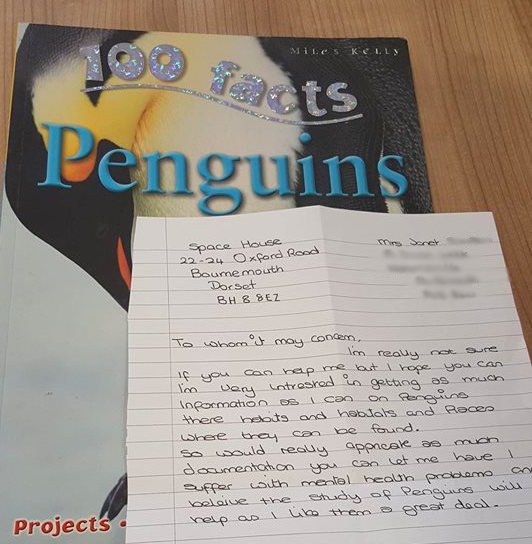 Miles Kelly
100 facts
Penguins
Space House
22-24 Oxford Road
Bournemouth
Dorset
BH8 8EZ
Mrs Janet
To whom it may concern,
I'm really not sure
if you can help me but I hope you can
I'm very intrested in getting as much
Information as I can on Penguins
there habits and habitats and Places
where they can be found.
So would really appricate as much
documentation you can let me have I
suffer with mental health problems and
beleive the study of Penguins will
help as I like them a great deal.
Projects •